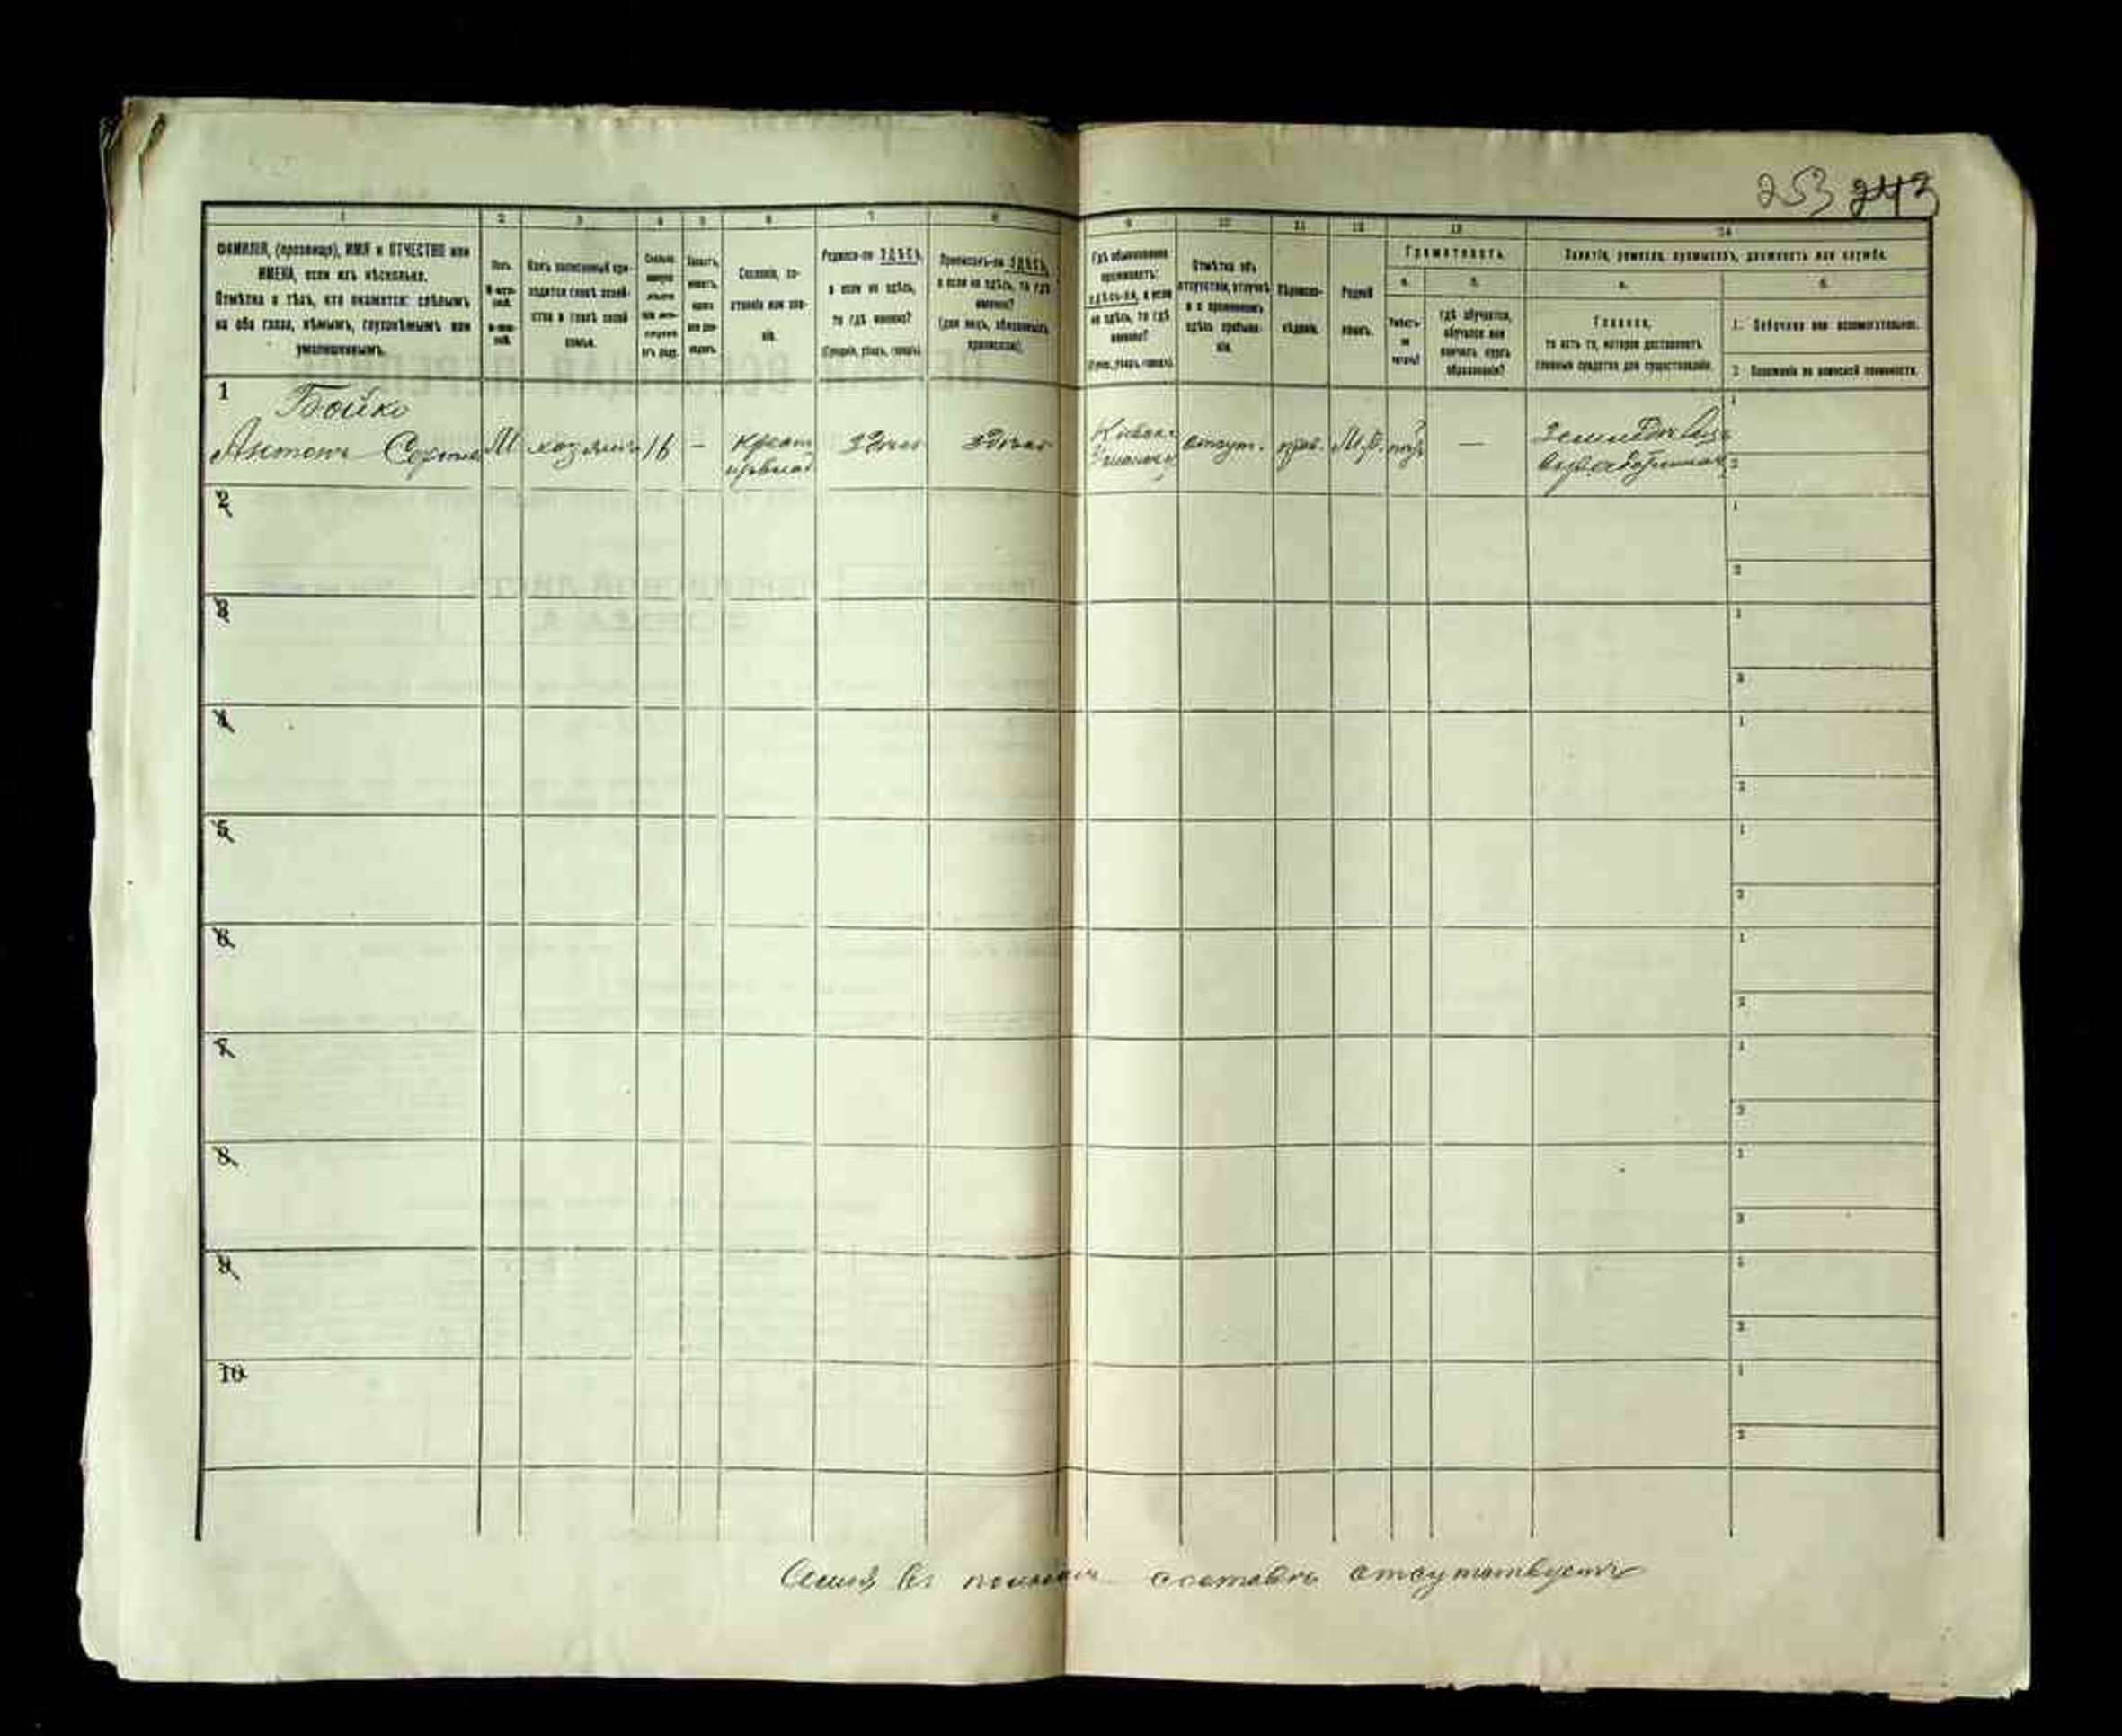 253 243
1 2 3 4 5 6 7 8 9 10 11 12 13 14
ФАМИЛІЯ, (прозвище), ИМЯ и ОТЧЕСТВО или
ИМЕНА, если ихъ нѣсколько.
Отмѣтка о тѣхъ, кто окажется: слѣпымъ
на оба глаза, нѣмымъ, глухонѣмымъ или
умалишеннымъ.
Полъ.
Какъ записанный при-
ходится главѣ хозяй-
ства и главѣ своей
семьи.
Сословіе, со-
стояніе или зва-
ніе.
Родился-ли ЗДѢСЬ,
а если не здѣсь,
то гдѣ именно?
(Губернія, уѣздъ, городъ).
Приписанъ-ли ЗДѢСЬ,
а если не здѣсь, то гдѣ
именно?
(для лицъ, обязанныхъ
припискою).
Гдѣ обыкновенно
проживаетъ:
здѣсь-ли, а если
не здѣсь, то гдѣ
именно?
(Губ., уѣздъ, городъ).
Отмѣтка объ
отсутствіи, отлучкѣ
и о временномъ
здѣсь пребыва-
ніи.
Вѣроиспо-
вѣданіе.
Родной
языкъ.
Грамотность.
а. б.
Умѣетъ-
ли
читать?
гдѣ обучается,
обучался или
кончилъ курсъ
образованія?
Занятіе, ремесло, промыселъ, должность или служба.
а. б.
Главное,
то есть то, которое доставляетъ
главныя средства для существованія.
1. Побочное или вспомогательное.
2. Положеніе по воинской повинности.
1 Бойко
Антонъ М хозяинъ 16 – Крест здѣсь здѣсь отсут. прав. М.р. — Земледѣл
2
3
4
5
6
7
8
9
10
Семья въ полномъ составѣ отсутствуетъ